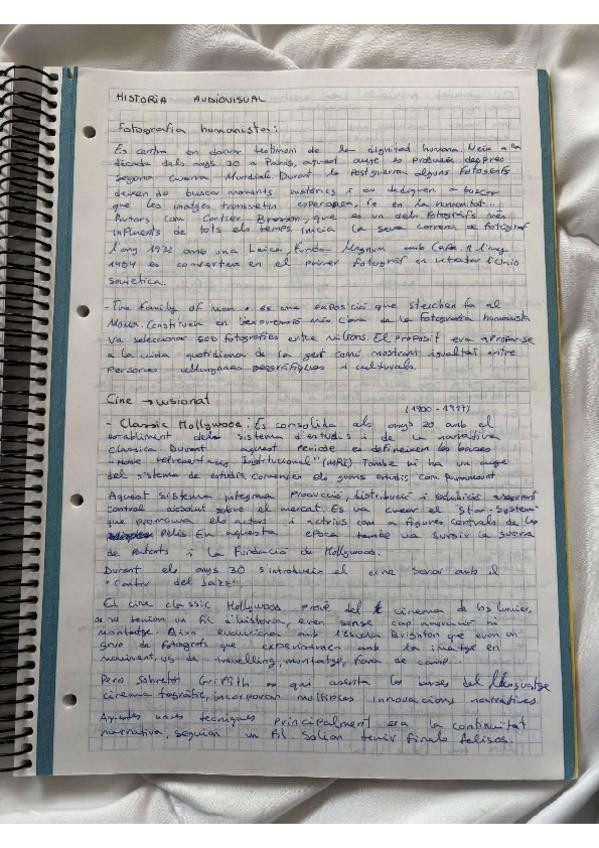 HISTORIA AUDIOVISUAL
Fotografia humanista:
Es centra en donar testimoni de la dignitat humana. Neix a la
década dels anys 30 a Paris, aquest auge es produeix despres
segona Guerra Mundial. Durant la postguerra alguns fotografs
deixen de buscar moments històrics i es dediquen a buscar
que les imatges transmetin esperança, fe en la humanitat...
Autors com Cartier Bresson, que es un dels fotografs més
influents de tots els temps. Inicia la seva carrera de fotograf
l'any 1932 amb una Leica, funda Magnum amb Capa i l'any
1954 es converteix en el primer fotograf en retratar l'Unio
sovietica.
- The Family of man: es una exposició que steichen fa al
Moma. Constitueix en l'expressió més clara de la fotografia humanista
va seleccionar 500 fotografies entre milions. El proposit era apropar-se
a la vida quotidiana de la gent comú mostrant igualtat entre
persones geogràfiques i culturals.
Cine →
(1900 - 1927)
- Classic Hollywood: Es consolida als anys 20 amb el
establiment dels sistema d'estudis i de la narrativa
classica Durant aquest periode es defineixen les bases
"Mode representació Institucional" (MRI) També hi ha un auge
del sistema de estudis comencen els grans estudis com Paramount
Aquest sistema integrava producció, distribució i exhibició
control absolut sobre el mercat. Es va crear el "Star-System"
que promovia els actors i actrius com a figures centrals de les
pelis. En aquesta epoca també va surgir la guerra
de Patents i la Fundació de Hollywood.
Durant els anys 30 s'introdueix el cine sonor amb el
"Cantor del Jazz"
El cine classic Hollywood prové del cinema de los Lumier,
si no tenien un fil d'historia, eren sense cap narració ni
muntatge. Aixo evoluciona amb l'escola Brighton que eren un
grup de fotografs que experimenten amb la imatge en
moviment, us de travelling, muntatge, fora de camp...
Pero sobretot Griffith es qui asenta les bases del llenguatge
cinematografic, incorporar multiples innovacions narratives
Aquestes unes tecniques principalment era la continuitat
narrativa, seguien un fil. Solian tenir finals felisos.